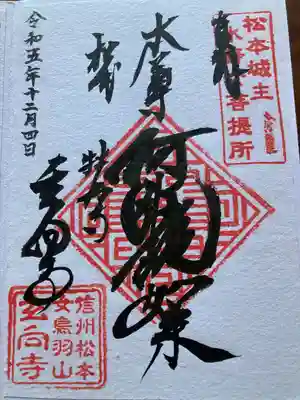 松本城主
菩提所
奉拝
本尊
阿弥陀如来
松本
牡丹の
玄向寺
令和五年十二月四日
信州松本
女鳥羽山
玄向寺